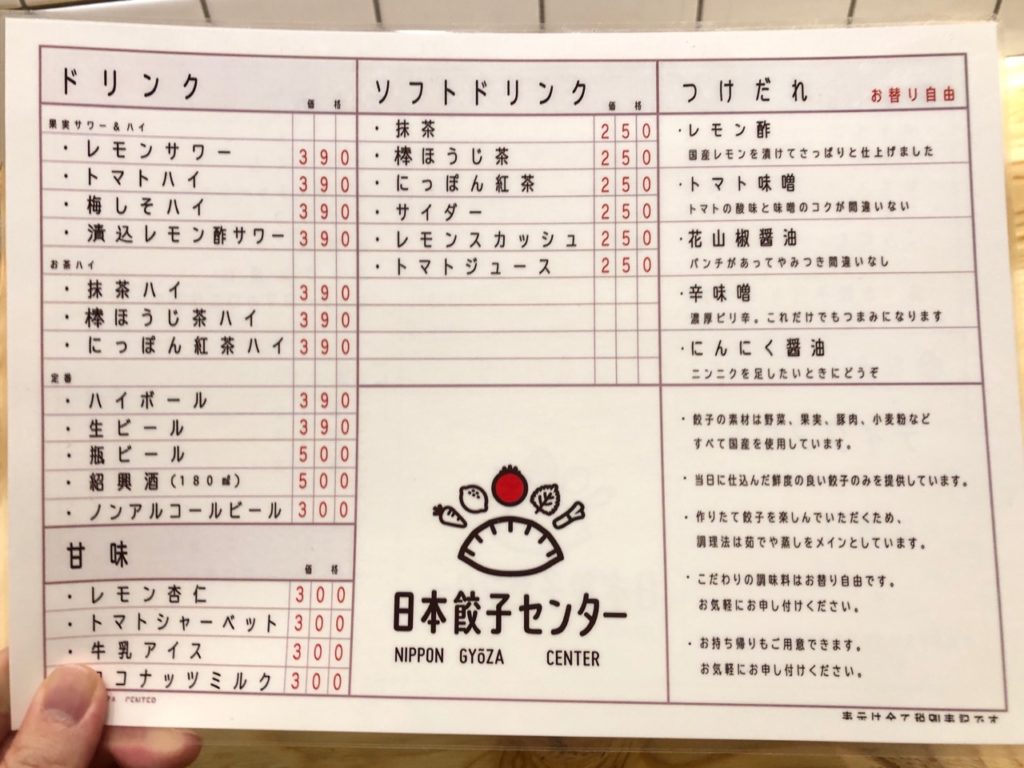 ドリンク 価 格
果実サワー&ハイ
・レモンサワー 390
・トマトハイ 390
・梅しそハイ 390
・漬込レモン酢サワー 390
お茶ハイ
・抹茶ハイ 390
・棒ほうじ茶ハイ 390
・にっぽん紅茶ハイ 390
定番
・ハイボール 390
・生ビール 390
・瓶ビール 500
・紹興酒(180㎖) 500
・ノンアルコールビール 300
甘味 価 格
・レモン杏仁 300
・トマトシャーベット 300
・牛乳アイス 300
ココナッツミルク 300
ソフトドリンク 価 格
・抹茶 250
・棒ほうじ茶 250
・にっぽん紅茶 250
・サイダー 250
・レモンスカッシュ 250
・トマトジュース 250
日本餃子センター
NIPPON GYōZA CENTER
つけだれ お替り自由
・レモン酢
国産レモンを漬けてさっぱりと仕上げました
・トマト味噌
トマトの酸味と味噌のコクが間違いない
・花山椒醤油
パンチがあってやみつき間違いなし
・辛味噌
濃厚ピリ辛。これだけでもつまみになります
・にんにく醤油
ニンニクを足したいときにどうぞ
・餃子の素材は野菜、果実、豚肉、小麦粉など
すべて国産を使用しています。
・当日に仕込んだ鮮度の良い餃子のみを提供しています。
・作りたて餃子を楽しんでいただくため、
調理法は茹でや蒸しをメインとしています。
・こだわりの調味料はお替り自由です。
お気軽にお申し付けください。
・お持ち帰りもご用意できます。
お気軽にお申し付けください。
表示は全て税別表記です